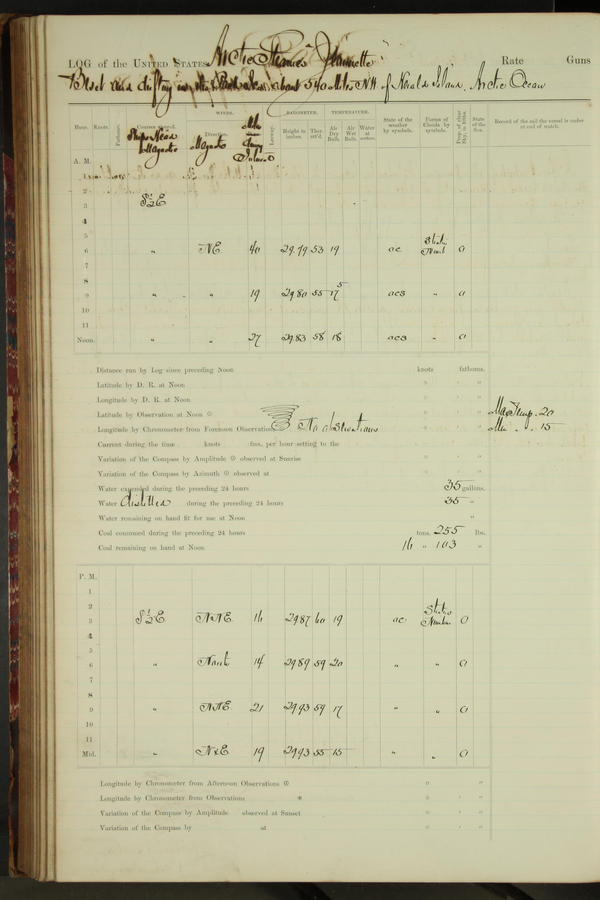 LOG of the United States Arctic Steamer "Jeannette" Rate Guns
Beset and drifting in the Pack about 540 Miles N.W. of Herald Island, Arctic Ocean
Hour. Knots. Fathoms. Courses steered. WINDS. Leeway. BAROMETER. TEMPERATURE. State of the weather by symbols. Forms of Clouds by symbols. Prop. of clear Sky, in 10ths. State of the Sea. Record of the sail the vessel is under at end of watch.
Ship's Head Magnetic Direction. Magnetic Height in inches. Ther. att'd. Air Dry Bulb. Air Wet Bulb. Water at
A. M.
1
2
3 S½E
4
5
6 " NE 40 29.79 53 19 oc Strat. Nimb 0
7
8
9 " " 19 29.80 55 17.5 ocs " 0
10
11
Noon. " " 27 29.83 58 18 ocs " 0
Distance run by Log since preceding Noon knots fathoms.
Latitude by D. R. at Noon ° ' "
Longitude by D. R. at Noon ° ' "
Latitude by Observation at Noon ° ' " Max Temp. 20
Longitude by Chronometer from Forenoon Observations No observations ° ' " Min " " 15
Current during the time knots fms. per hour setting to the
Variation of the Compass by Amplitude observed at Sunrise ° ' "
Variation of the Compass by Azimuth observed at ° ' "
Water expended during the preceding 24 hours 35 gallons.
Water distilled during the preceding 24 hours 35 "
Water remaining on hand fit for use at Noon
Coal consumed during the preceding 24 hours tons, 255 lbs.
Coal remaining on hand at Noon 16 " 103 "
P. M.
1
2
3 S½E NNE 16 29.87 60 19 oc Stratus Nimbus 0
4
5
6 " North 14 29.89 59 20 " " 0
7
8
9 " NNE 21 29.93 59 17 " " 0
10
11
Mid. " NxE 19 29.93 55 15 " " 0
Longitude by Chronometer from Afternoon Observations ° ' "
Longitude by Chronometer from Observations * ° ' "
Variation of the Compass by Amplitude observed at Sunset ° ' "
Variation of the Compass by at ° ' "